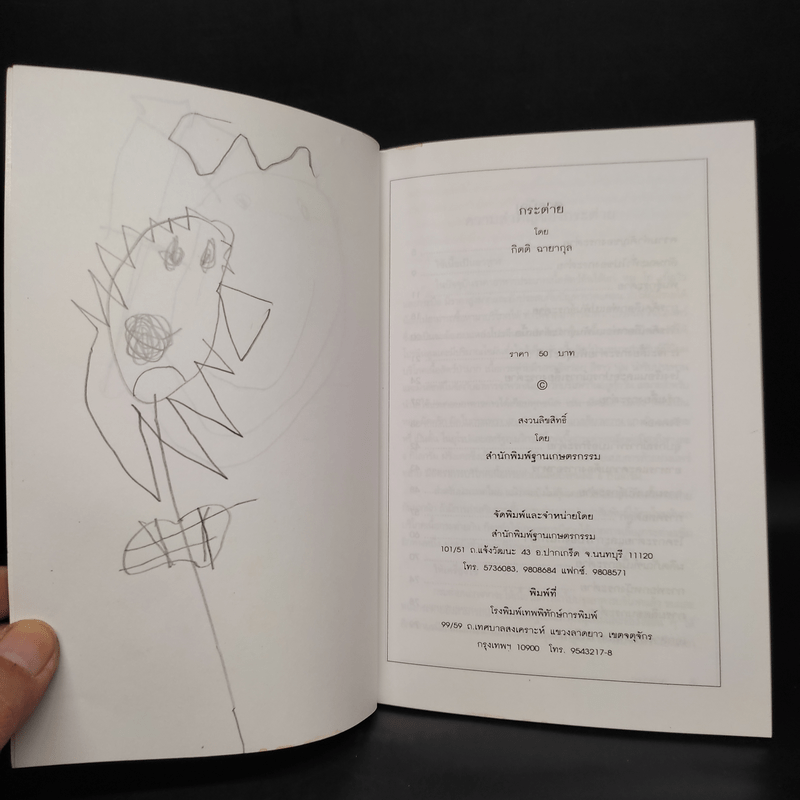 กระต่าย
โดย
กิตติ ฉายากุล
ราคา 50 บาท
©
สงวนลิขสิทธิ์
โดย
สำนักพิมพ์ฐานเกษตรกรรม
จัดพิมพ์และจำหน่ายโดย
สำนักพิมพ์ฐานเกษตรกรรม
101/51 ถ.แจ้งวัฒนะ 43 อ.ปากเกร็ด จ.นนทบุรี 11120
โทร. 5736083, 9808684 แฟกซ์. 9808571
พิมพ์ที่
โรงพิมพ์เทพพิทักษ์การพิมพ์
99/59 ถ.เทศบาลสงเคราะห์ แขวงลาดยาว เขตจตุจักร
กรุงเทพฯ 10900 โทร. 9543217-8